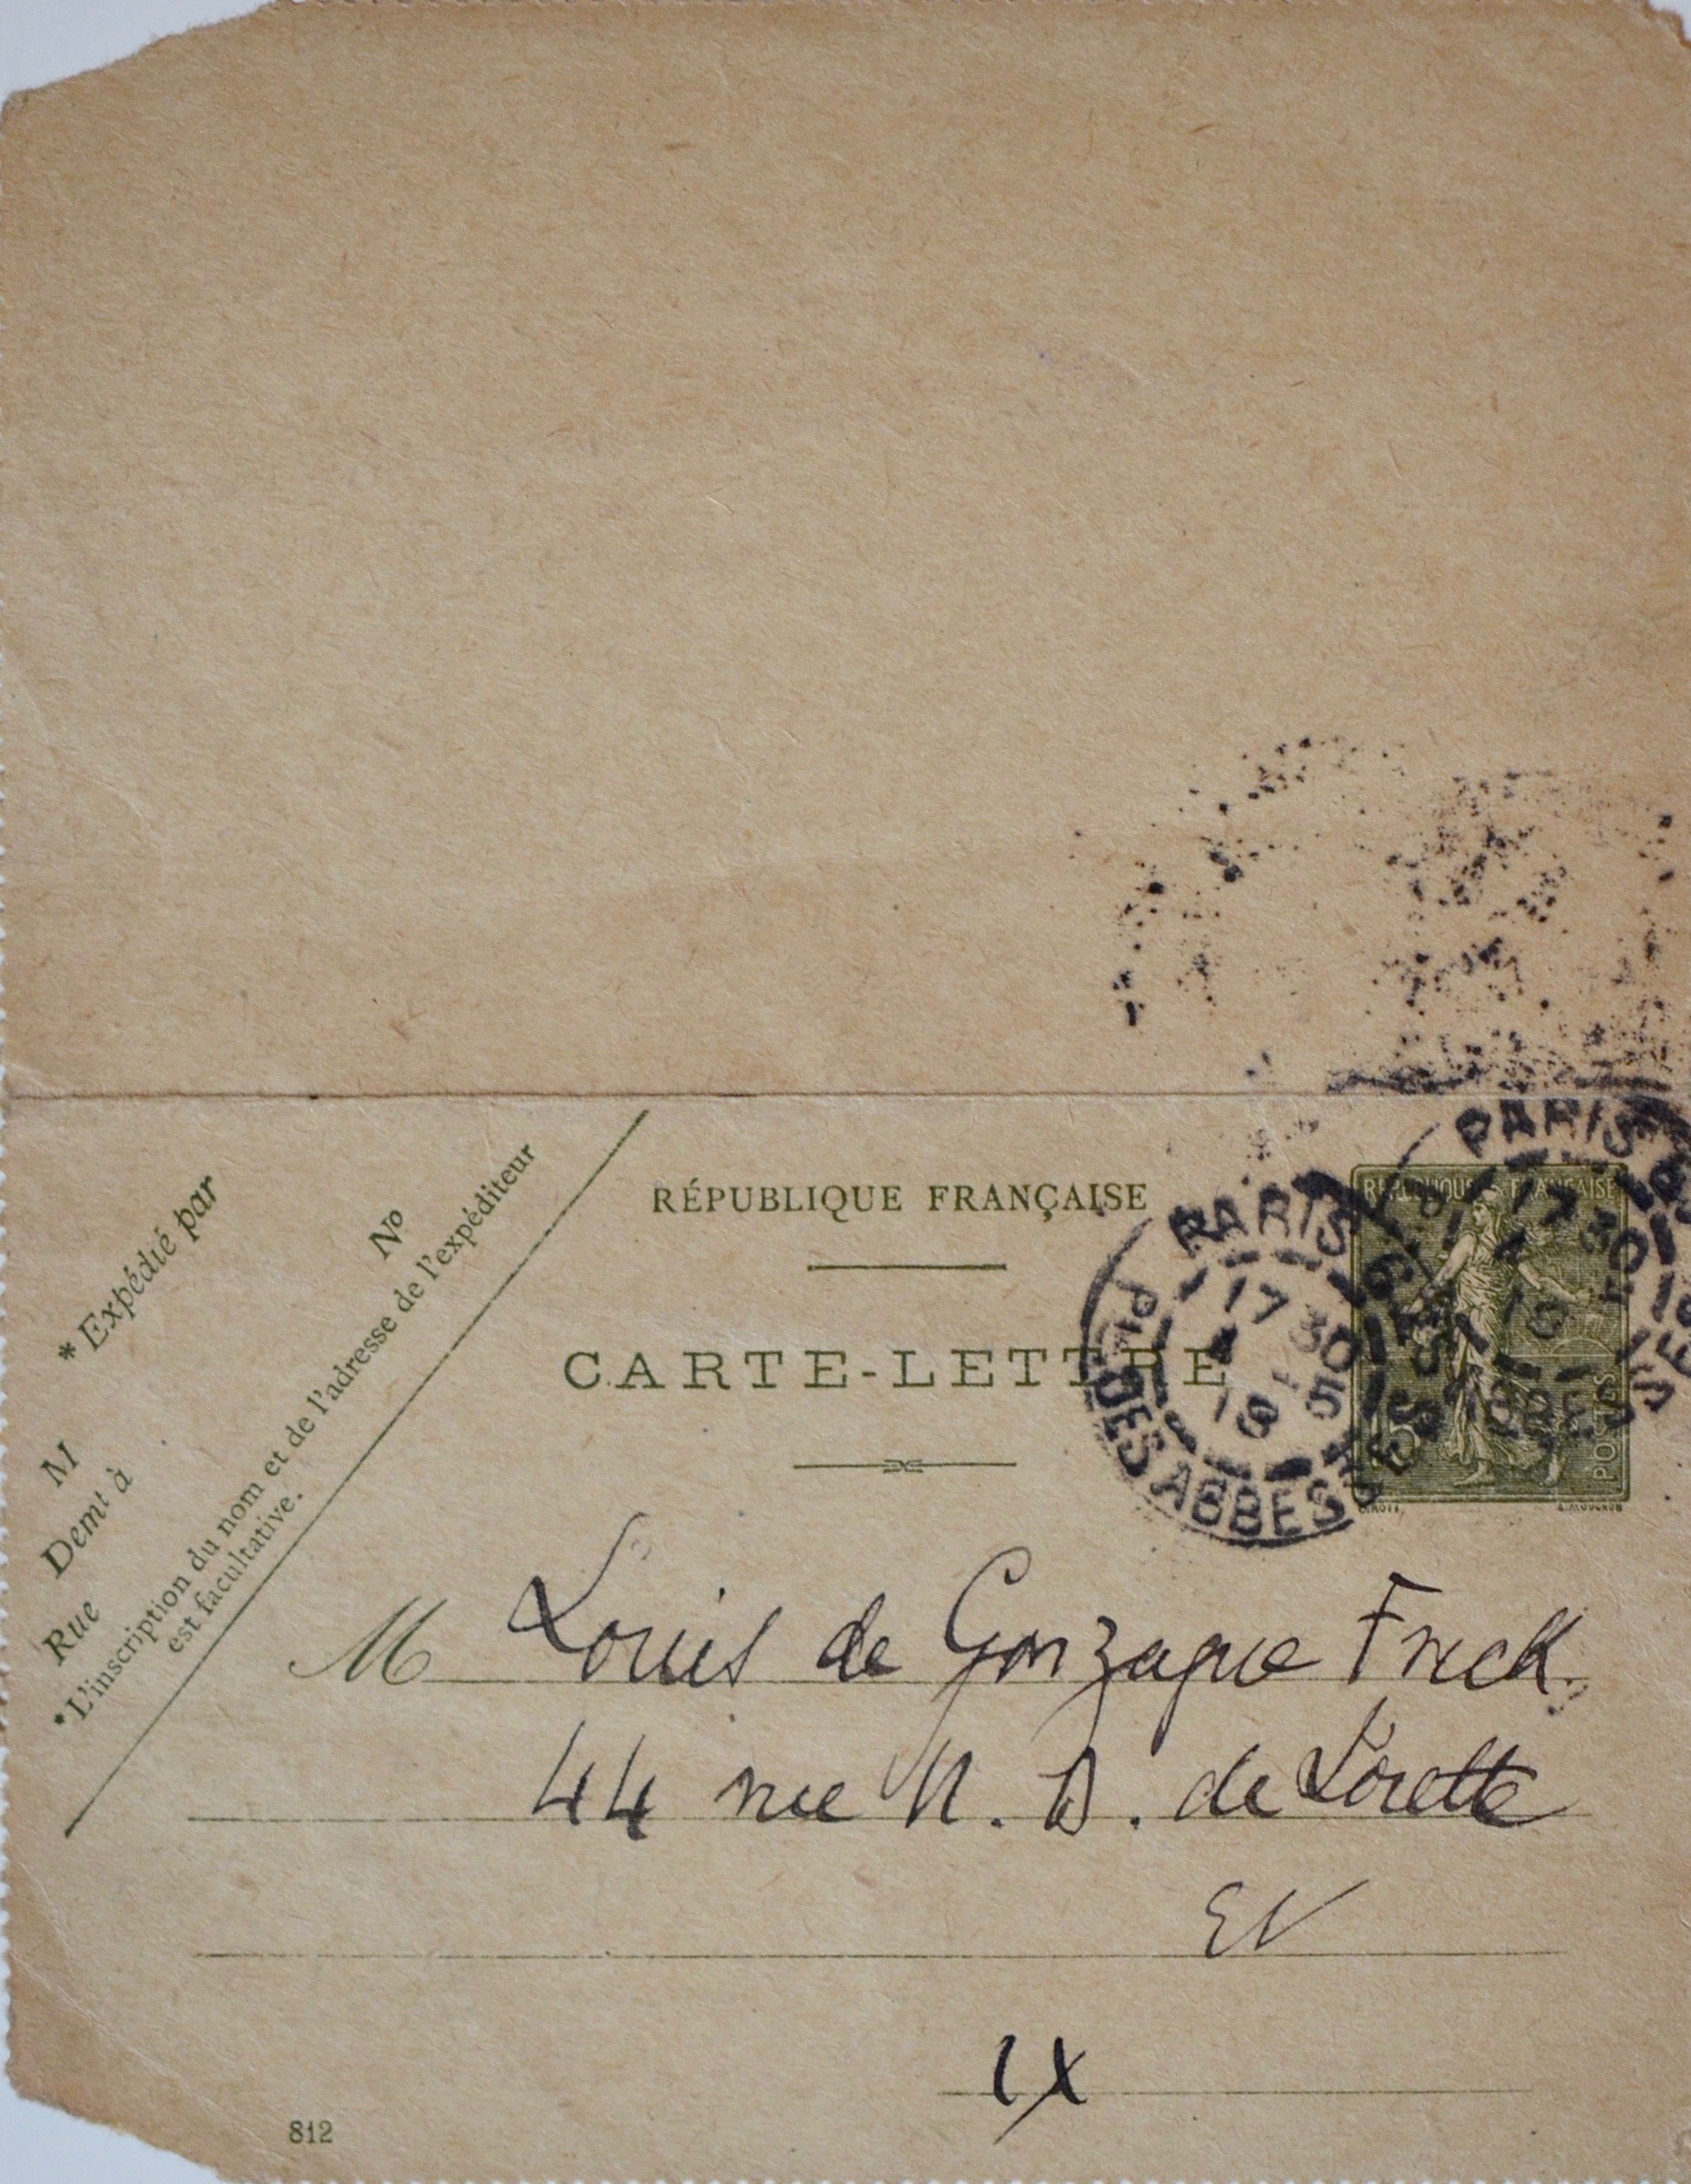 * Expédié par
M
Demt à
Rue
No
*L'inscription du nom et de l'adresse de l'expéditeur
est facultative.
RÉPUBLIQUE FRANÇAISE
CARTE-LETTRE
RÉPUBLIQUE FRANÇAISE
POSTES
PARIS
17 30
PARIS
17 30
4 - 5
18
PL. DES ABBESSES
M Louis de Gonzague Frick
44 rue N. D. de Lorette
EV
IX
812